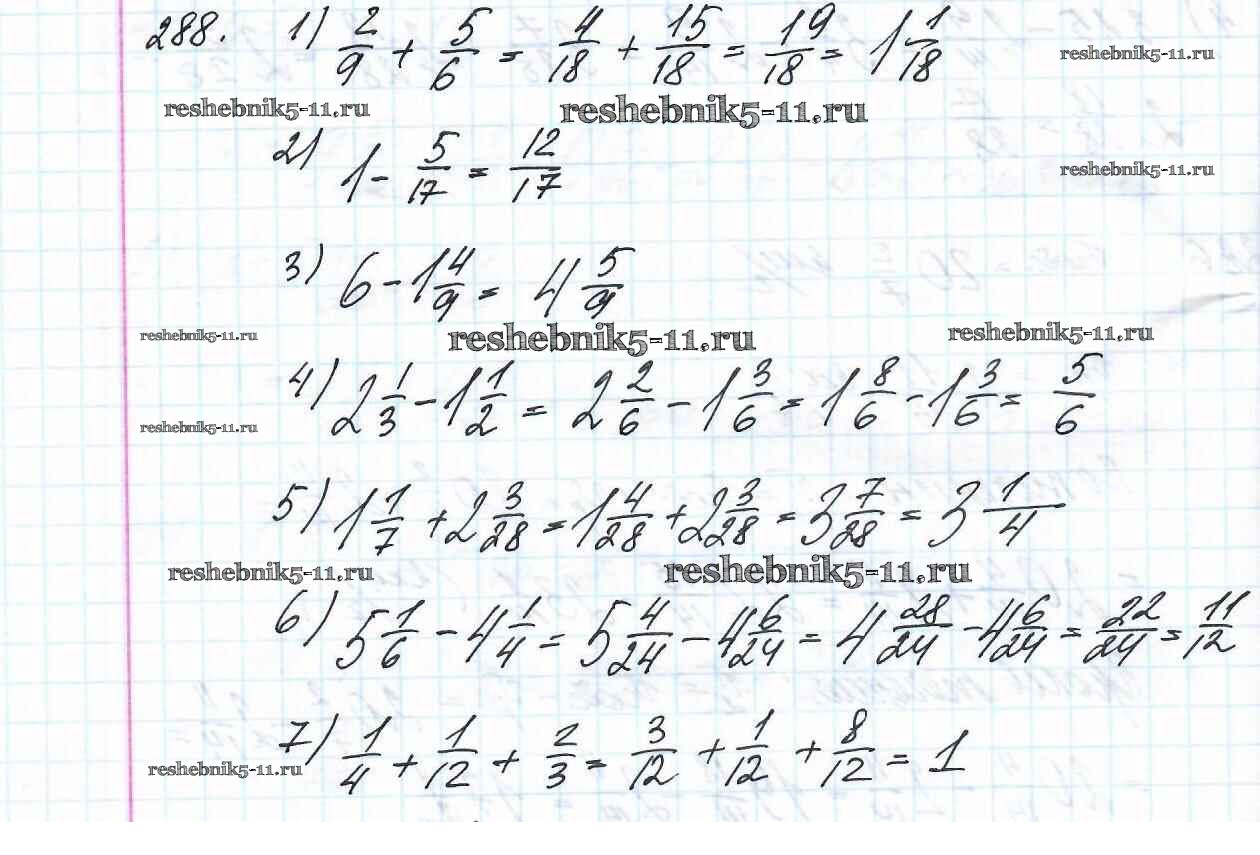 288. 1) 2/9 + 5/6 = 4/18 + 15/18 = 19/18 = 1 1/18
reshebnik5-11.ru
reshebnik5-11.ru reshebnik5-11.ru
2) 1 - 5/17 = 12/17
reshebnik5-11.ru
3) 6 - 1 4/9 = 4 5/9
reshebnik5-11.ru reshebnik5-11.ru reshebnik5-11.ru
4) 2 1/3 - 1 1/2 = 2 2/6 - 1 3/6 = 1 8/6 - 1 3/6 = 5/6
reshebnik5-11.ru
5) 1 1/7 + 2 3/28 = 1 4/28 + 2 3/28 = 3 7/28 = 3 1/4
reshebnik5-11.ru reshebnik5-11.ru
6) 5 1/6 - 4 1/4 = 5 4/24 - 4 6/24 = 4 28/24 - 4 6/24 = 22/24 = 11/12
7) 1/4 + 1/12 + 2/3 = 3/12 + 1/12 + 8/12 = 1
reshebnik5-11.ru